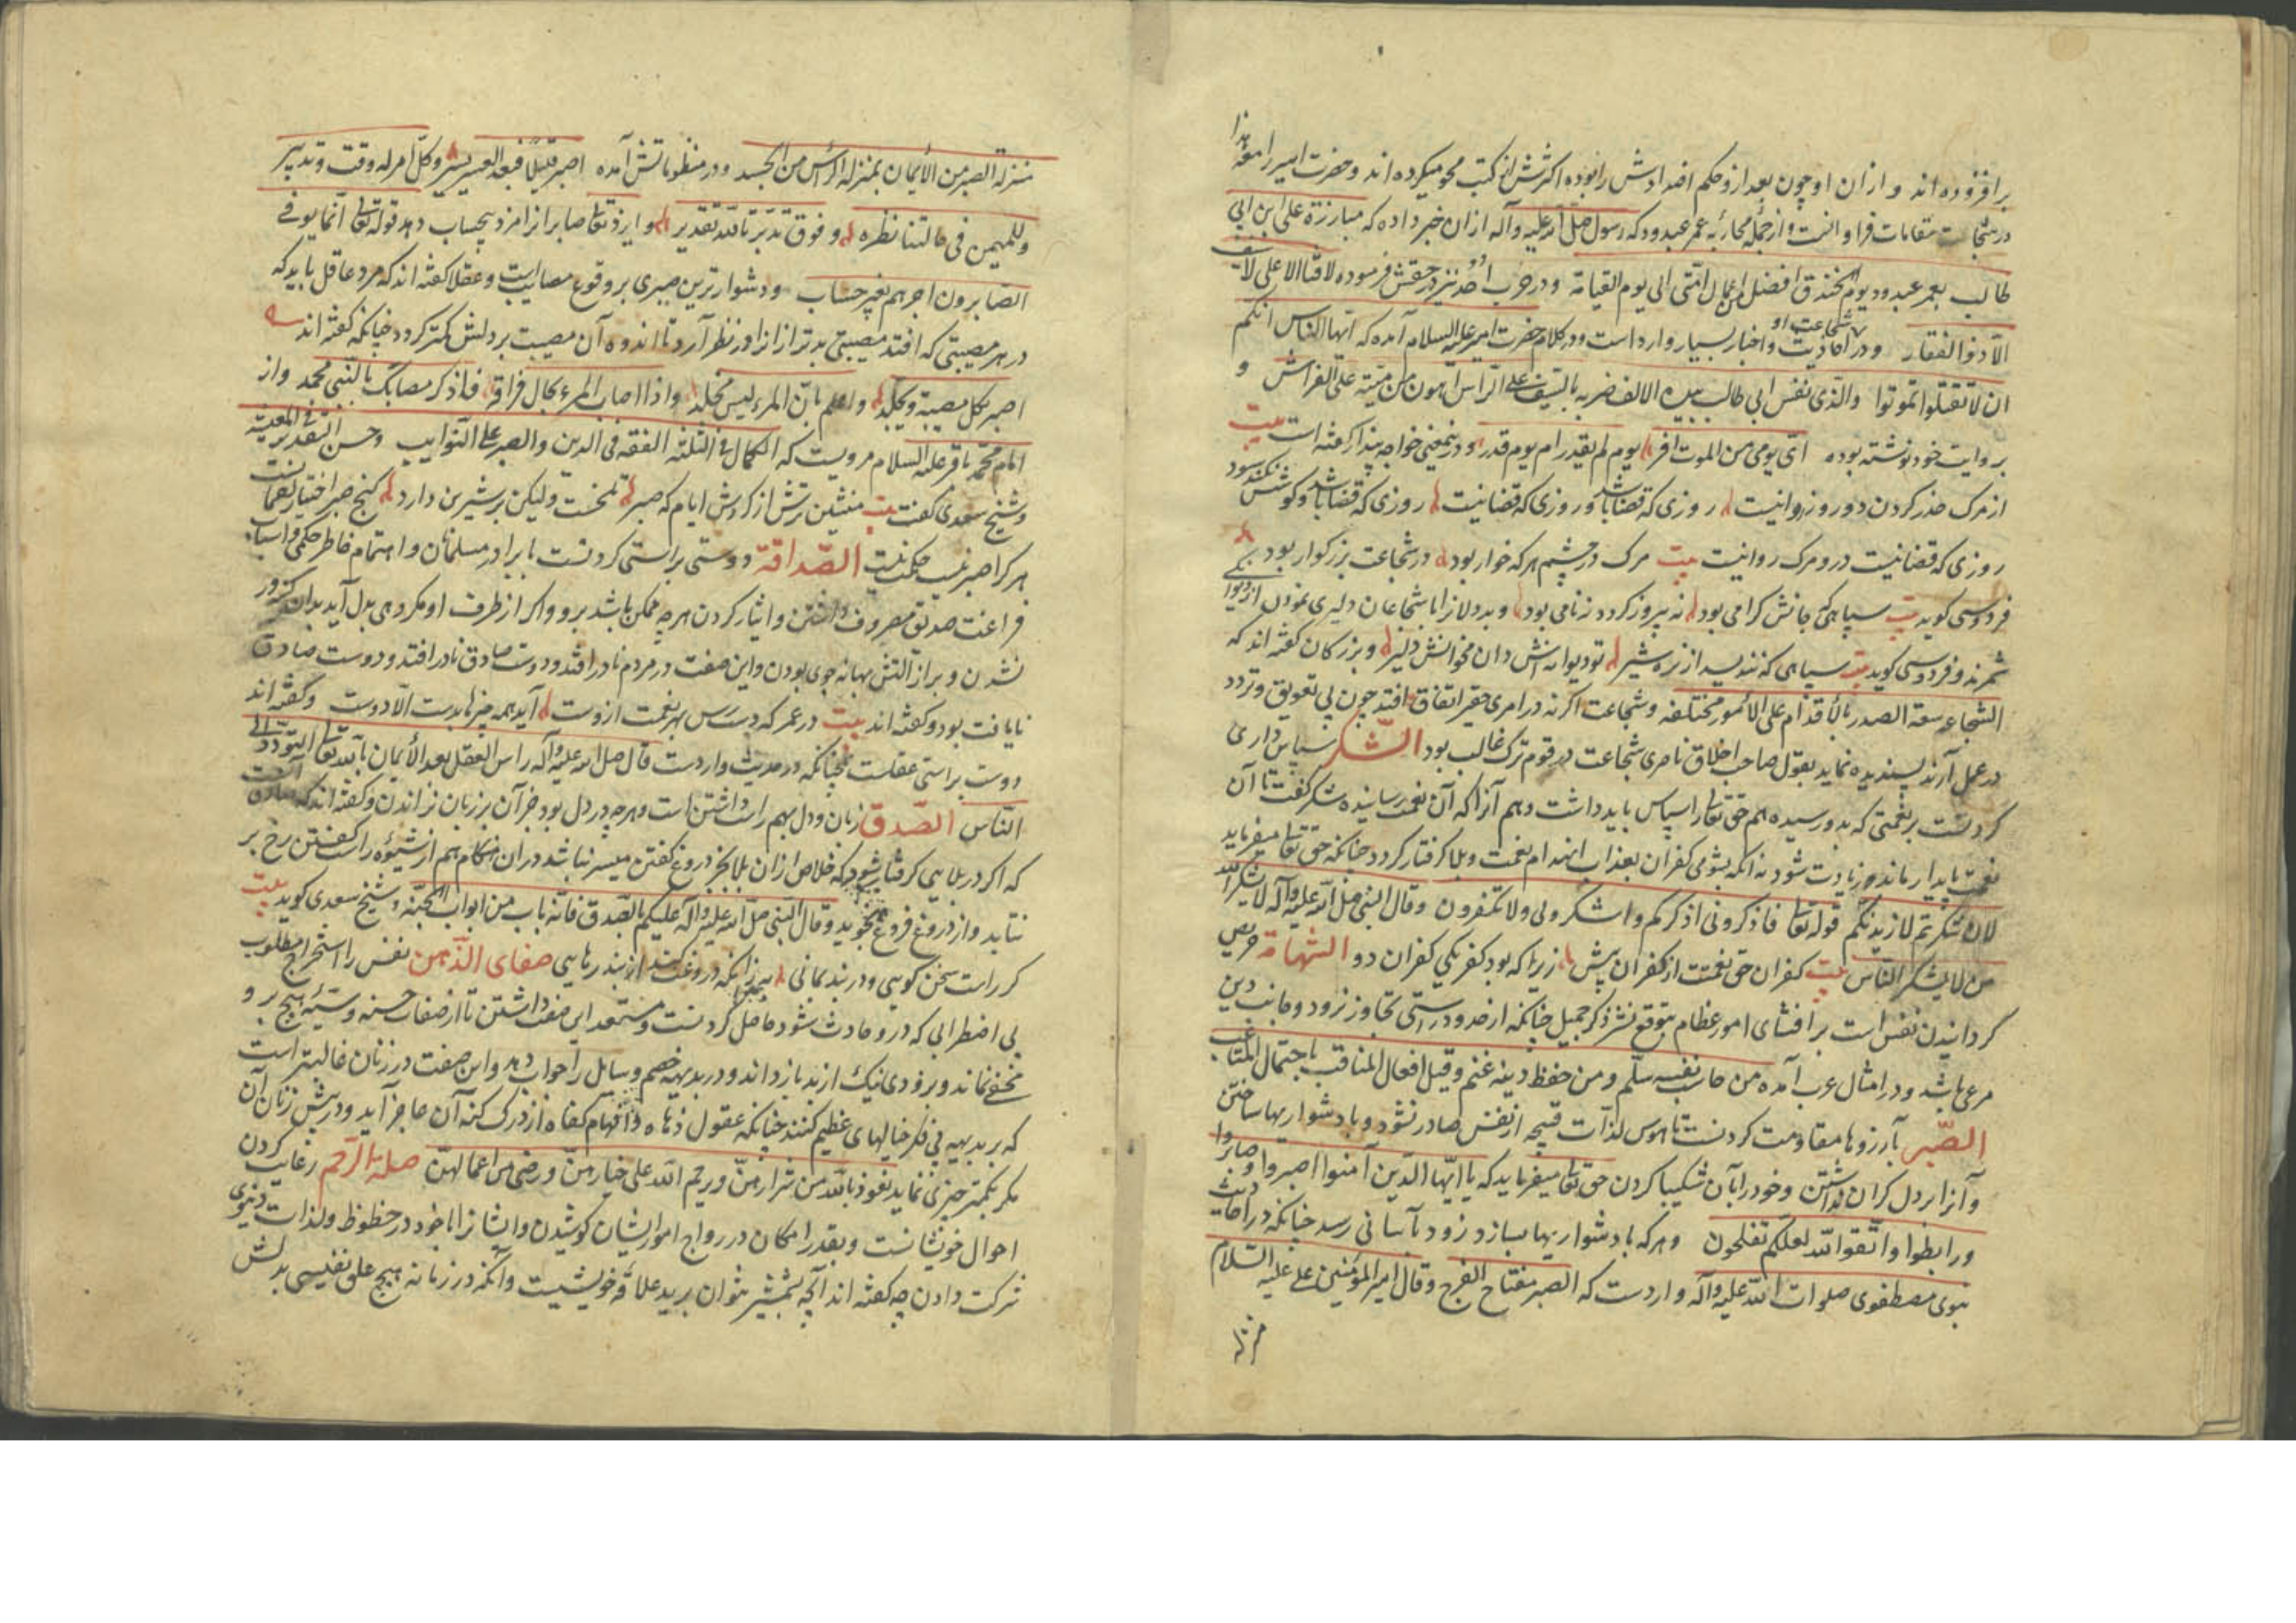 برافزوده اند و از ان او چون بعد از و حکم اضدادش را بوده اکثرش از کتب محو میکرده اند و حضرت امیر را معه هذا
در شجاعت مقامات فراوانست و از جمله محاربه عمر عبدود که رسول صلی الله علیه وآله از ان خبر داده که مبارزة علی ابن ابی
طالب بعمر عبدود یوم الخندق افضل من اعمال امّتی الی یوم القیامة و در حرب احد نیز در حقش فرموده لا فتا الا علی لا سیف
الّا ذوالفقار و در شجاعت او احادیث و اخبار بسیار وارد است و در کلام حضرت امیر علیه السلام آمده که ایّها الناس انکم
ان لا تقتلوا تموتوا والّذی نفس ابی طالب بیده الالف ضربه بالسّیف علی الرّاس اهون من میتة علی الفراش و
بروایت خود نوشته بوده ایّ یومی من الموت افر یوم لم یقدر ام یوم قدر و درینمعنی خواجه پندار گفته است بیت
از مرک حذر کردن دو روز روانیست روزی که قضا باشد و روزی که قضا نیست روزی که قضا باشد و کوشش نکند سود
روزی که قضا نیست درو مرک روانیست بیت مرک در چشم هر که خوار بود در شجاعت بزرکوار بود
فردوسی کوید بیت سپاهی که جانش کرامی بود نه پیروز کردد نه نامی بود و بددلانرا با شجاعان دلیری نمودن از دیوانکی
شمرند و فردوسی کوید بیت سپاهی که نندیشد از نره شیر تو دیوانه اش دان مخوانش دلیر و بزرکان گفته اند که
الشجاعه سعة الصدر بالأقدام علی الأمور مختلفه و شجاعت اکر نه در امری حقیر اتفاق افتد چون بی تعویق و تردد
در عمل آرند پسندیده نماید بقول صاحب اخلاق ناصری شجاعت در قوم ترک غالب بود الشّکر سپاس داری
کردنست بر نعمتی که بدو رسیده هم حق تعالی را سپاس باید داشت و هم آنرا که آن نعمت رسانیده شکر کفت تا آن
نعمت پایدار ماند و زیادت شود نه آنکه بشومی کفران بعذاب انهدام نعمت و بلا کرفتار کردد چنانکه حق تعالی میفرماید
لان شکرتم لازیدنکم قوله تعالی فاذکرونی اذکرکم واشکرولی ولا تکفرون وقال النبی صلی الله علیه وآله لا یشکر الله
من لا یشکر النّاس بیت کفران حق نعمتت از کفران بیش زیرا که بود کفر یکی کفران دو الشّهامة حریص
کردانیدن نفس است بر افشای امور عظام بتوقع نشر ذکر جمیل چنانکه از حد و در راستی تجاوز نرود و جانب دین
مرعی باشد و در امثال عرب آمده من حاسب نفسه سلّم ومن حفظ دینه غنم وقیل افعال المناقب باحتمال المتاعب
الصّبر با آرزوها مقاومت کردنست تا هوس لذّات قبیحه از نفس صادر نشود و با دشواریها ساختن
و آنرا بر دل کران نداشتن و خود را بآن شکیبا کردن حق تعالی میفرماید که یا ایّها الّذین آمنوا اصبروا وصابروا
ورابطوا واتّقوا الله لعلکم تفلحون و هر که با دشواریها بسازد زود بآسانی رسد چنانکه در احادیث
نبوی مصطفوی صلوات الله علیه وآله واردست که الصبر مفتاح الفرج وقال امیر المؤمنین علی علیه السلام
منزلة
منزلة الصبر من الأیمان بمنزله الرّأس من الجسد و در منظوماتش آمده اصبر قلیلاً فبعد العسر یسر وکلّ امر له وقت وتدبیر
وللمهیمن فی حالتنا نظره وفوق تدبّرنا لله تقدیر و ایزد تعالی صابرانرا مزد بیحساب دهد قوله تعالی انّما یوفی
الصّابرون اجرهم بغیر حساب و دشوارترین صبری بر وقوع مصایب است و عقلا کفته اند که مرد عاقل باید که
در هر مصیبتی که افتد مصیبتی بدتر از انرا در نظر آرد تا اندوه آن مصیبت بر دلش کمتر کردد چنانکه کفته اند
اصبر لکل مصیبة وتجلّد واعلم بانّ المرء لیس مخلّد واذا اصاب المرء بحال فراقه فاذکر مصابک بالنّبی محمّد و از
امام محمّد باقر علیه السلام مرویست که الکمال فی الثلثه الفقه فی الدین والصبر علی النّوایب وحسن التقدیر فی المعیشة
و شیخ سعدی کفت بیت منشین ترش از کردش ایام که صبر تلخست ولیکن بر شیرین دارد کنج صبر اختیار لقمانست
هر کرا صبر نیست حکمت نیست الصّداقة دوستی براستی کردنست با برادر مسلمانان و اهتمام خاطر حکمی و اسباب
فراغت صدیق مصروف داشتن و ایثار کردن هر چه ممکن باشد برو و اکر از طرف او مکروهی بدل آید بدان کینه ور
نشدن و براز النش بهانه جوی بودن و این صفت در مردم نادر افتد و دوست صادق نادر افتد و دوست صادق
نایافت بود و کفته اند بیت در عمر که دسترس بهر نعمت ازوست آید همه چیزها بدست الّا دوست و کفته اند
دوست براستی عقلست چنانکه در حدیث واردست قال صلی الله علیه وآله راس العقل بعد الأیمان بالله تعالی التودّد الی
النّاس الصّدق زبان و دل بهم راست داشتن است و هر چه در دل بود جز آن بر زبان نراندن و کفته اند که صادق آنست
که اکر در بلایی کرفتار شود که خلاص از ان بلا بجز دروغ کفتن میسر نباشد در ان هنکام هم از شیوه راست کفتن رخ بر
نتابد و از دروغ فروغ نجوید وقال النّبی صلی الله علیه وآله علیکم بالصّدق فانّه باب من ابواب الجنّه و شیخ سعدی کوید بیت
کر راست سخن کویی و در بند بمانی به زانکه دروغت دهد از بند رهایی صفای الذّهن نفس را استخراج مطلوب
بی اضطرابی که درو حادث شود حاصل کردنست و مستعد این صفت داشتن تا از صفات حسنه و سیّئه هیچ برو
مخفی نماند و بزودی نیک از بد بازداند و در بدیهه خصم و سایل را جواب دهد و این صفت در زنان غالبتر است
که بر بدیهه بی فکر خیالهای عظیم کنند چنانکه عقول ذهاه و افهام کفاه از درک کنه آن عاجز آید و در پیش زنان آن
مکر کمتر چیزی نماید نعوذ بالله من شرارهنّ ورحم الله علی خیارهنّ ورضی من اعمالهنّ صلة الرّحم رغایب کردن
احوال خویشانست و بقدر امکان در رواج امور ایشان کوشیدن و ایشانرا با خود در حظوظ و لذات دنیوی
شرکت دادن چه کفته اند آنچه بشمشیر نتوان برید علاقه خویشیست و آنکه در زمانه هیچ علق نفیسی بدلش